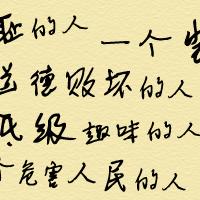 耻的人 一个
道德败坏的人
低级趣味的人
个危害人民的人